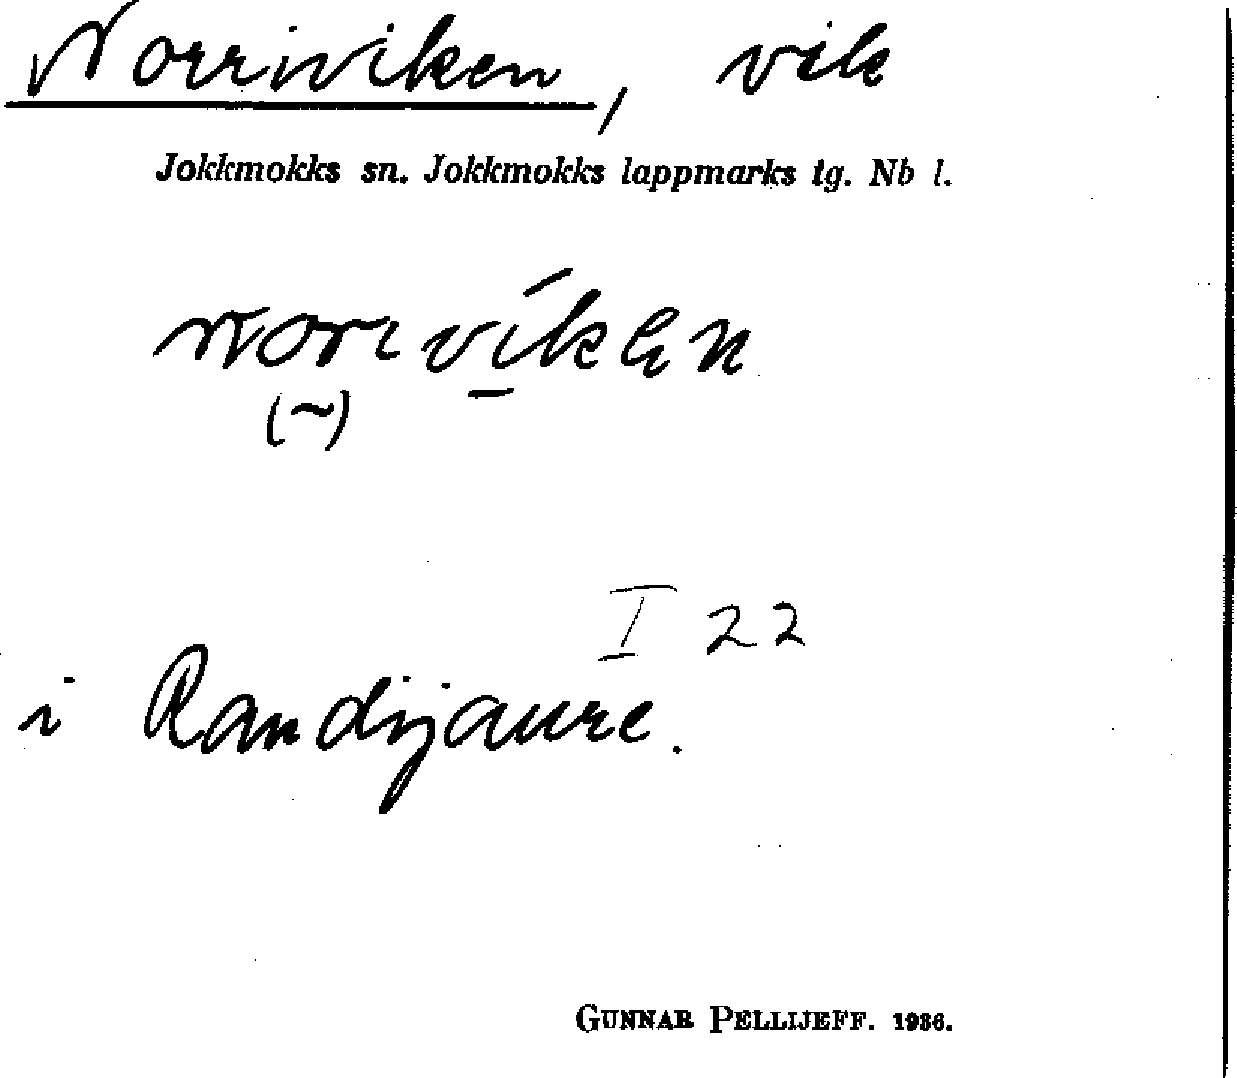 Norriviken, vik
Jokkmokks sn. Jokkmokks lappmarks tg. Nb l.
(~)
I 22
i Randijaure.
GUNNAR PELLIJEFF. 1936.